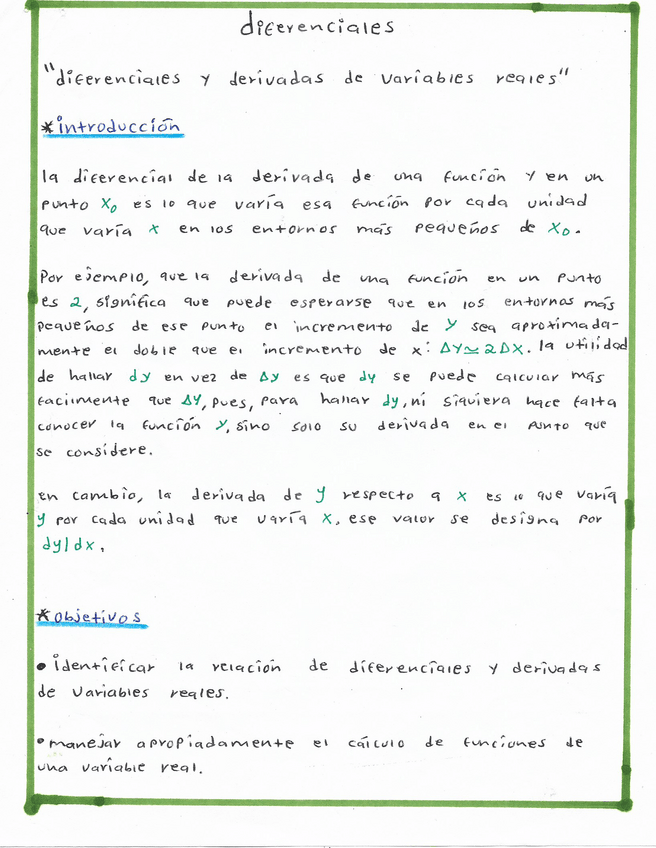 diferenciales
"diferenciales y derivadas de variables reales"
*introducción
la diferencial de la derivada de una función y en un
punto x₀ es lo que varía esa función por cada unidad
que varía x en los entornos más pequeños de x₀.
Por ejemplo, que la derivada de una función en un punto
es 2, significa que puede esperarse que en los entornos más
pequeños de ese punto el incremento de y sea aproximada-
mente el doble que el incremento de x: Δy≃2Δx. la utilidad
de hallar dy en vez de Δy es que dy se puede calcular más
facilmente que Δy, pues, para hallar dy, ni siquiera hace falta
conocer la función y, sino solo su derivada en el punto que
se considere.
en cambio, la derivada de y respecto a x es lo que varía
y por cada unidad que varía x, ese valor se designa por
dy/dx.
*objetivos
• identificar la relación de diferenciales y derivadas
de variables reales.
• manejar apropiadamente el cálculo de funciones de
una variable real.